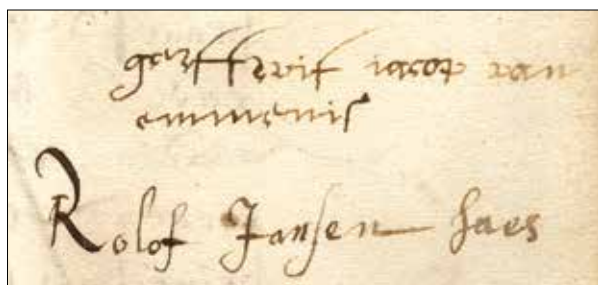 gerffrvif iacop van
emmenis
Rolof Jansen haes